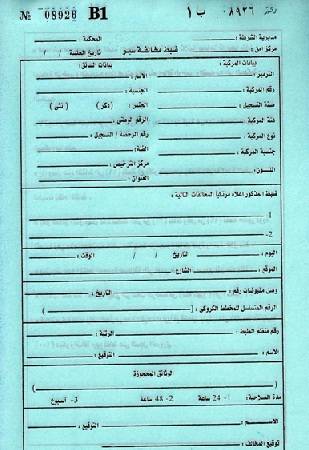 № 08926 B1 ب ١ ٠٨٩٢٦ رقم
مديرية الشرطة : المحكمة :
ضبط مخالفة سير
مركز امن : تاريخ الجلسة / /
بيانات المركبة : بيانات السائق :
الترميز : الاسم :
رقم المركبة : الجنسية :
صفة التسجيل : الجنس : ( ذكر ) ( انثى )
فئة المركبة : الرقم الوطني :
نوع المركبة : رقم الرخصة / التسجيل :
جنسية المركبة : الفئة :
اللون : مركز الترخيص :
العنوان :
ضبط المذكور اعلاه مرتكبا المخالفات التالية :
1-
2-
اليوم : التاريخ / / الوقت :
الموقع : الشارع :
ومن مقتربات رقم : التاريخ :
الرقم المتسلسل للمخطط الكروكي : ( )
رقم منظم الضبط : الرتبة :
الاسم : التوقيع :
الوثائق المحجوزة
( )
مدة الصلاحية : 1- 24 ساعة 2- 48 ساعة 3- اسبوع
الاســـم : التوقيع :
توقيع المخالف :